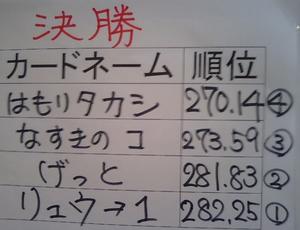 決勝
カードネーム 順位
はもりタカシ 270.14④
なすきのコ 273.59③
げっと 281.83②
リュウ→1 282.25①